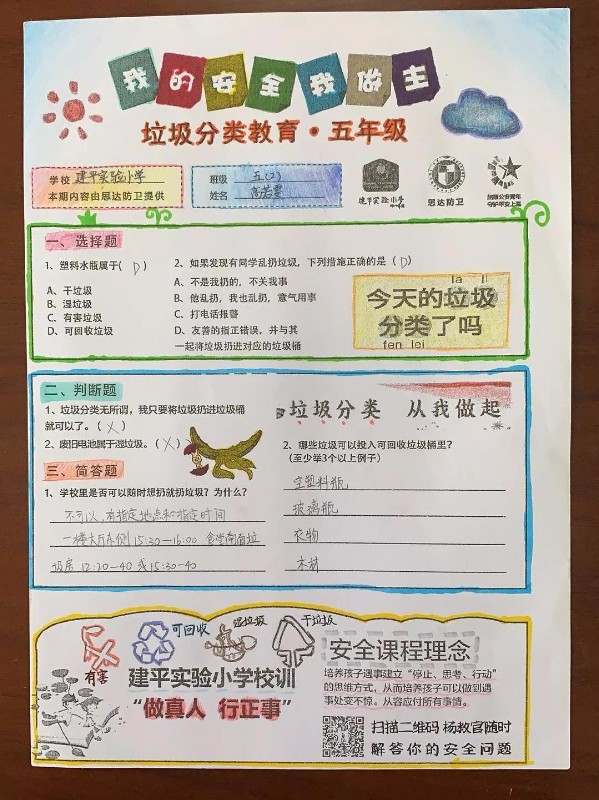 我的安全我做主
垃圾分类教育·五年级
学校 建平实验小学
本期内容由思达防卫提供
班级 五(2)
姓名
建平实验小学
思达防卫
守护平安上海
一、选择题
1、塑料水瓶属于( D )
A、干垃圾
B、湿垃圾
C、有害垃圾
D、可回收垃圾
2、如果发现有同学乱扔垃圾，下列措施正确的是（D）
A、不是我扔的，不关我事
B、他乱扔，我也乱扔，意气用事
C、打电话报警
D、友善的指正错误，并与其
一起将垃圾扔进对应的垃圾桶
la ji
今天的垃圾
分类了吗
fen lei
二、判断题
1、垃圾分类无所谓，我只要将垃圾扔进垃圾桶
就可以了。（X）
2、废旧电池属于湿垃圾。（X）
三、简答题
1、学校里是否可以随时想扔就扔垃圾？为什么？
不可以，有指定地点和指定时间
一楼大厅东侧15:30-16:00 食堂南面垃
圾房 12:20-40 或15:30-40
垃圾分类 从我做起
2、哪些垃圾可以投入可回收垃圾桶里？
（至少举3个以上例子）
空塑料瓶
玻璃瓶
衣物
木材
有害
可回收
湿垃圾
干垃圾
建平实验小学校训
“做真人 行正事”
安全课程理念
培养孩子遇事建立“停止、思考、行动”
的思维方式，从而培养孩子可以做到遇
事处变不惊。从容应付所有事情。
扫描二维码 杨教官随时
解答你的安全问题